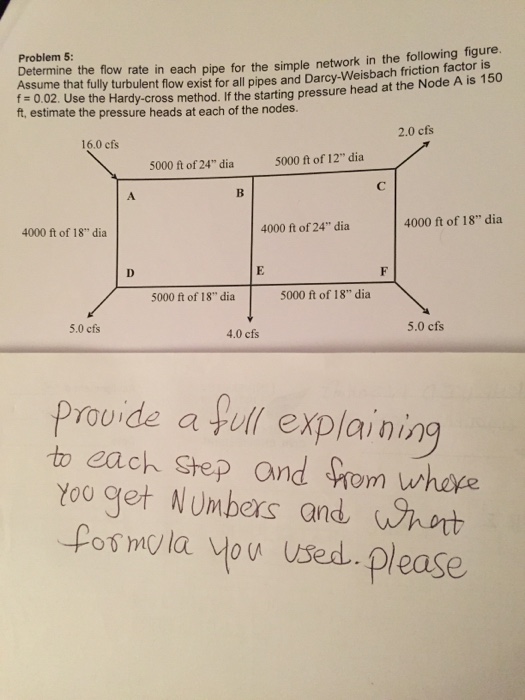 Problem 5:
Determine the flow rate in each pipe for the simple network in the following figure.
Assume that fully turbulent flow exist for all pipes and Darcy-Weisbach friction factor is
f = 0.02. Use the Hardy-cross method. If the starting pressure head at the Node A is 150
ft, estimate the pressure heads at each of the nodes.
2.0 cfs
16.0 cfs
5000 ft of 24" dia
5000 ft of 12" dia
A
B
C
4000 ft of 18" dia
4000 ft of 24" dia
4000 ft of 18" dia
D
E
F
5000 ft of 18" dia
5000 ft of 18" dia
5.0 cfs
4.0 cfs
5.0 cfs
Provide a full explaining
to each step and from where
You get NUmbers and what
formula you used. please